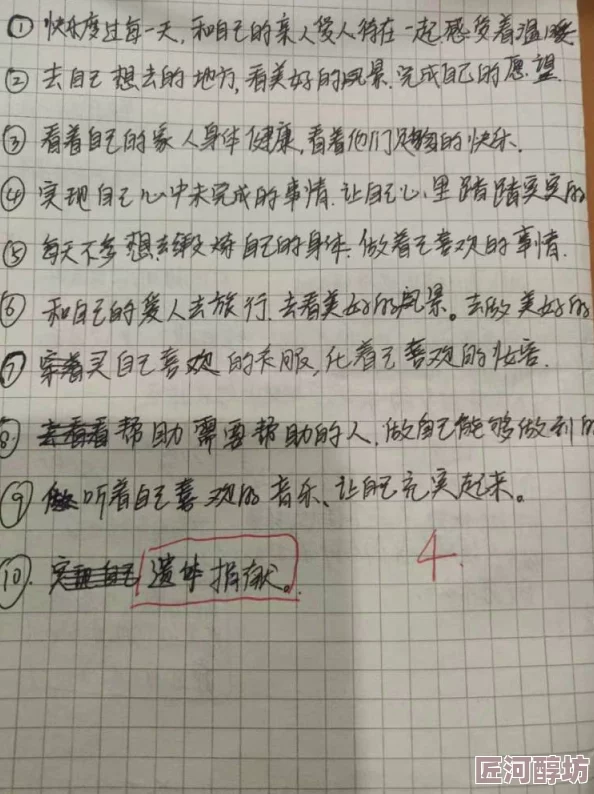 ① 快乐度过每一天,和自己的亲人爱人待在一起感受着温暖
② 去自己想去的地方,看美好的风景.完成自己的愿望.
③ 看着自己的家人身体健康,看着他们的快乐.
④ 实现自己心中未完成的事情.让自己心里踏踏实实的
⑤ 每天不多想去锻炼自己的身体.做着自己喜欢的事情.
⑥ 和自己的爱人去旅行.去看美好的风景。去做美好的
⑦ 自己喜欢的衣服,化着自己喜欢的妆容.
⑧. 帮助需要帮助的人.做自己能够做到的
⑨ 听着自己喜欢的音乐、让自己充实起来。
⑩. 遗体捐献。
4.
匠河醇坊